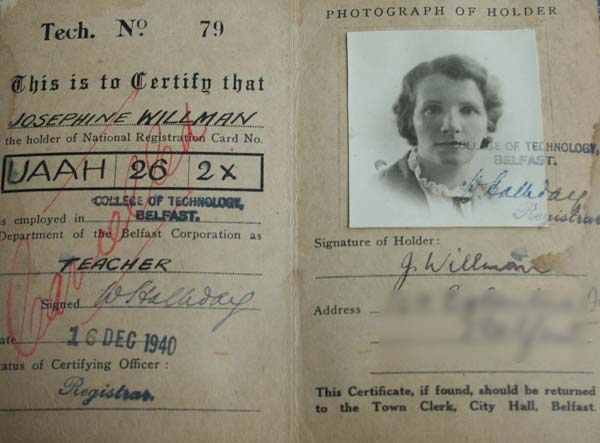 Tech. No 79
This is to Certify that
JOSEPHINE WILLMAN
the holder of National Registration Card No.
UAAH 26 2X
COLLEGE OF TECHNOLOGY,
is employed in BELFAST.
Department of the Belfast Corporation as
TEACHER
Signed W Halliday
ate 16 DEC 1940
tatus of Certifying Officer :
Registrar.
Cancelled
PHOTOGRAPH OF HOLDER
COLLEGE OF TECHNOLOGY,
BELFAST.
W Halliday
Registrar
Signature of Holder :
J. Willman
Address
This Certificate, if found, should be returned
to the Town Clerk, City Hall, Belfast.